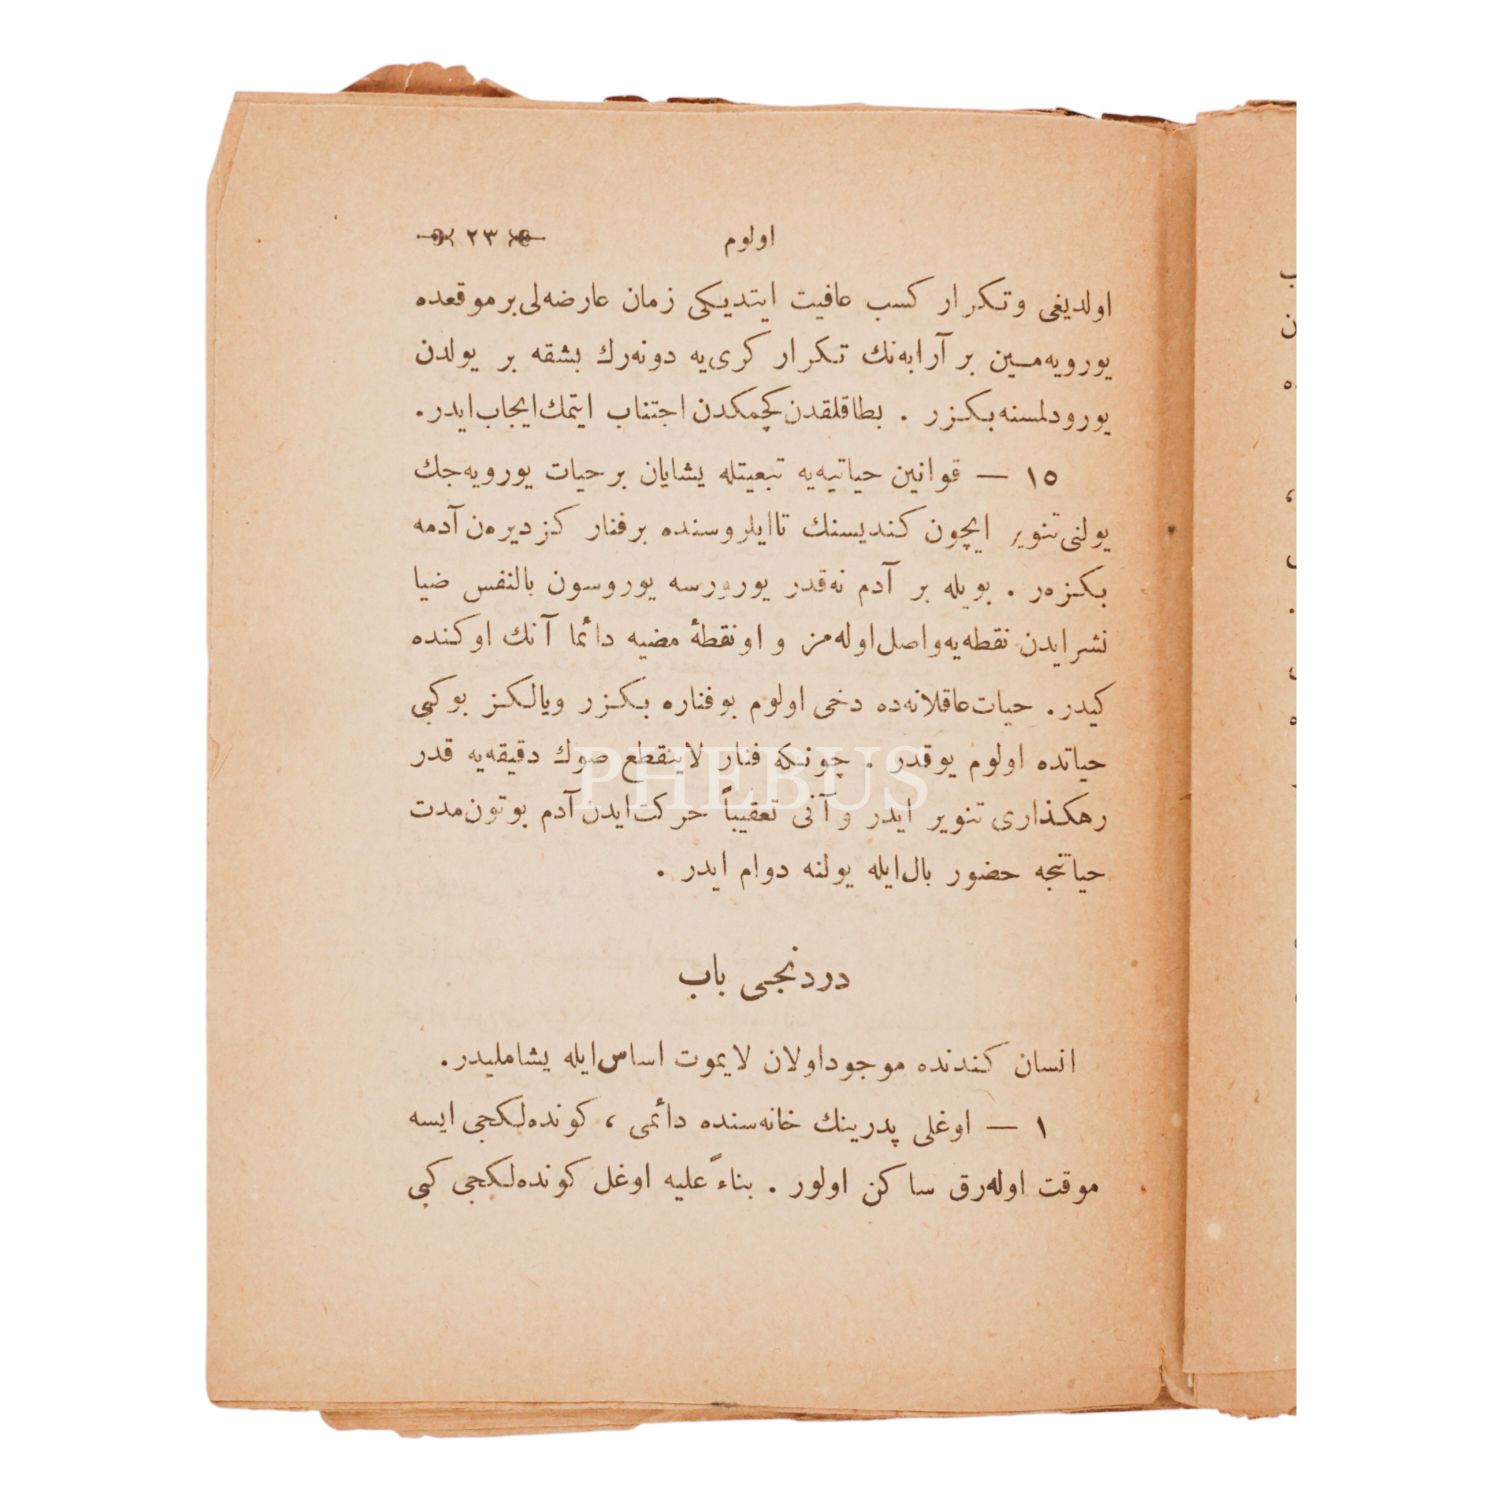 اولوم ٢٣
اولديغی وتكرار كسب عافيت ايتديكی زمان عارضه‌لی بر موقعده
يورويه‌مين بر آرابه‌نك تكرار كری‌يه دونه‌رك بشقه بر يولدن
يورودلمسنه بكزر . بطاقلقدن كچمكدن اجتناب ايتمك ايجاب ايدر.
١٥ — قوانين حياتيه‌يه تبعيتله يشايان بر حيات يورويه‌جك
يولنی تنوير ايچون كنديسنك تا ايلروسنده بر فنار كزديره‌ن آدمه
بكزه‌ر . بويله بر آدم نه‌قدر يورورسه يوروسون بالنفس ضيا
نشر ايدن نقطه‌يه واصل اوله‌مز و او نقطۀ مضيه دائما آنك اوكنده
كيدر. حيات عاقلانه‌ده دخی اولوم بو فناره بكزر ويالكز بوكبی
حياتده اولوم يوقدر . چونكه فنار لاينقطع صوك دقيقه‌يه قدر
رهكذاری تنوير ايدر و آنی تعقيباً حركت ايدن آدم بوتون مدت
حياتنجه حضور بال ايله يولنه دوام ايدر .
دردنجی باب
انسان كندنده موجود اولان لايموت اساس ايله يشامليدر.
١ — اوغلی پدرينك خانه‌سنده دائمی ، كونده‌لكجی ايسه
موقت اوله‌رق ساكن اولور . بناءً عليه اوغل كونده‌لكجی كبی
PHEBUS